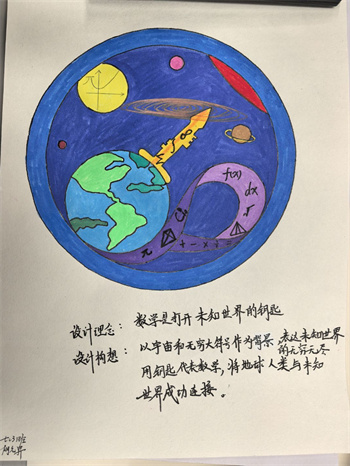 f(x)
dx
π
+ - × ÷ =
∞
设计理念： 数学是打开未知世界的钥匙
设计构想： 以宇宙和无穷大符号作为背景，表达未知世界的无穷无尽
用钥匙代表数学，将地球人类与未知
世界成功连接。